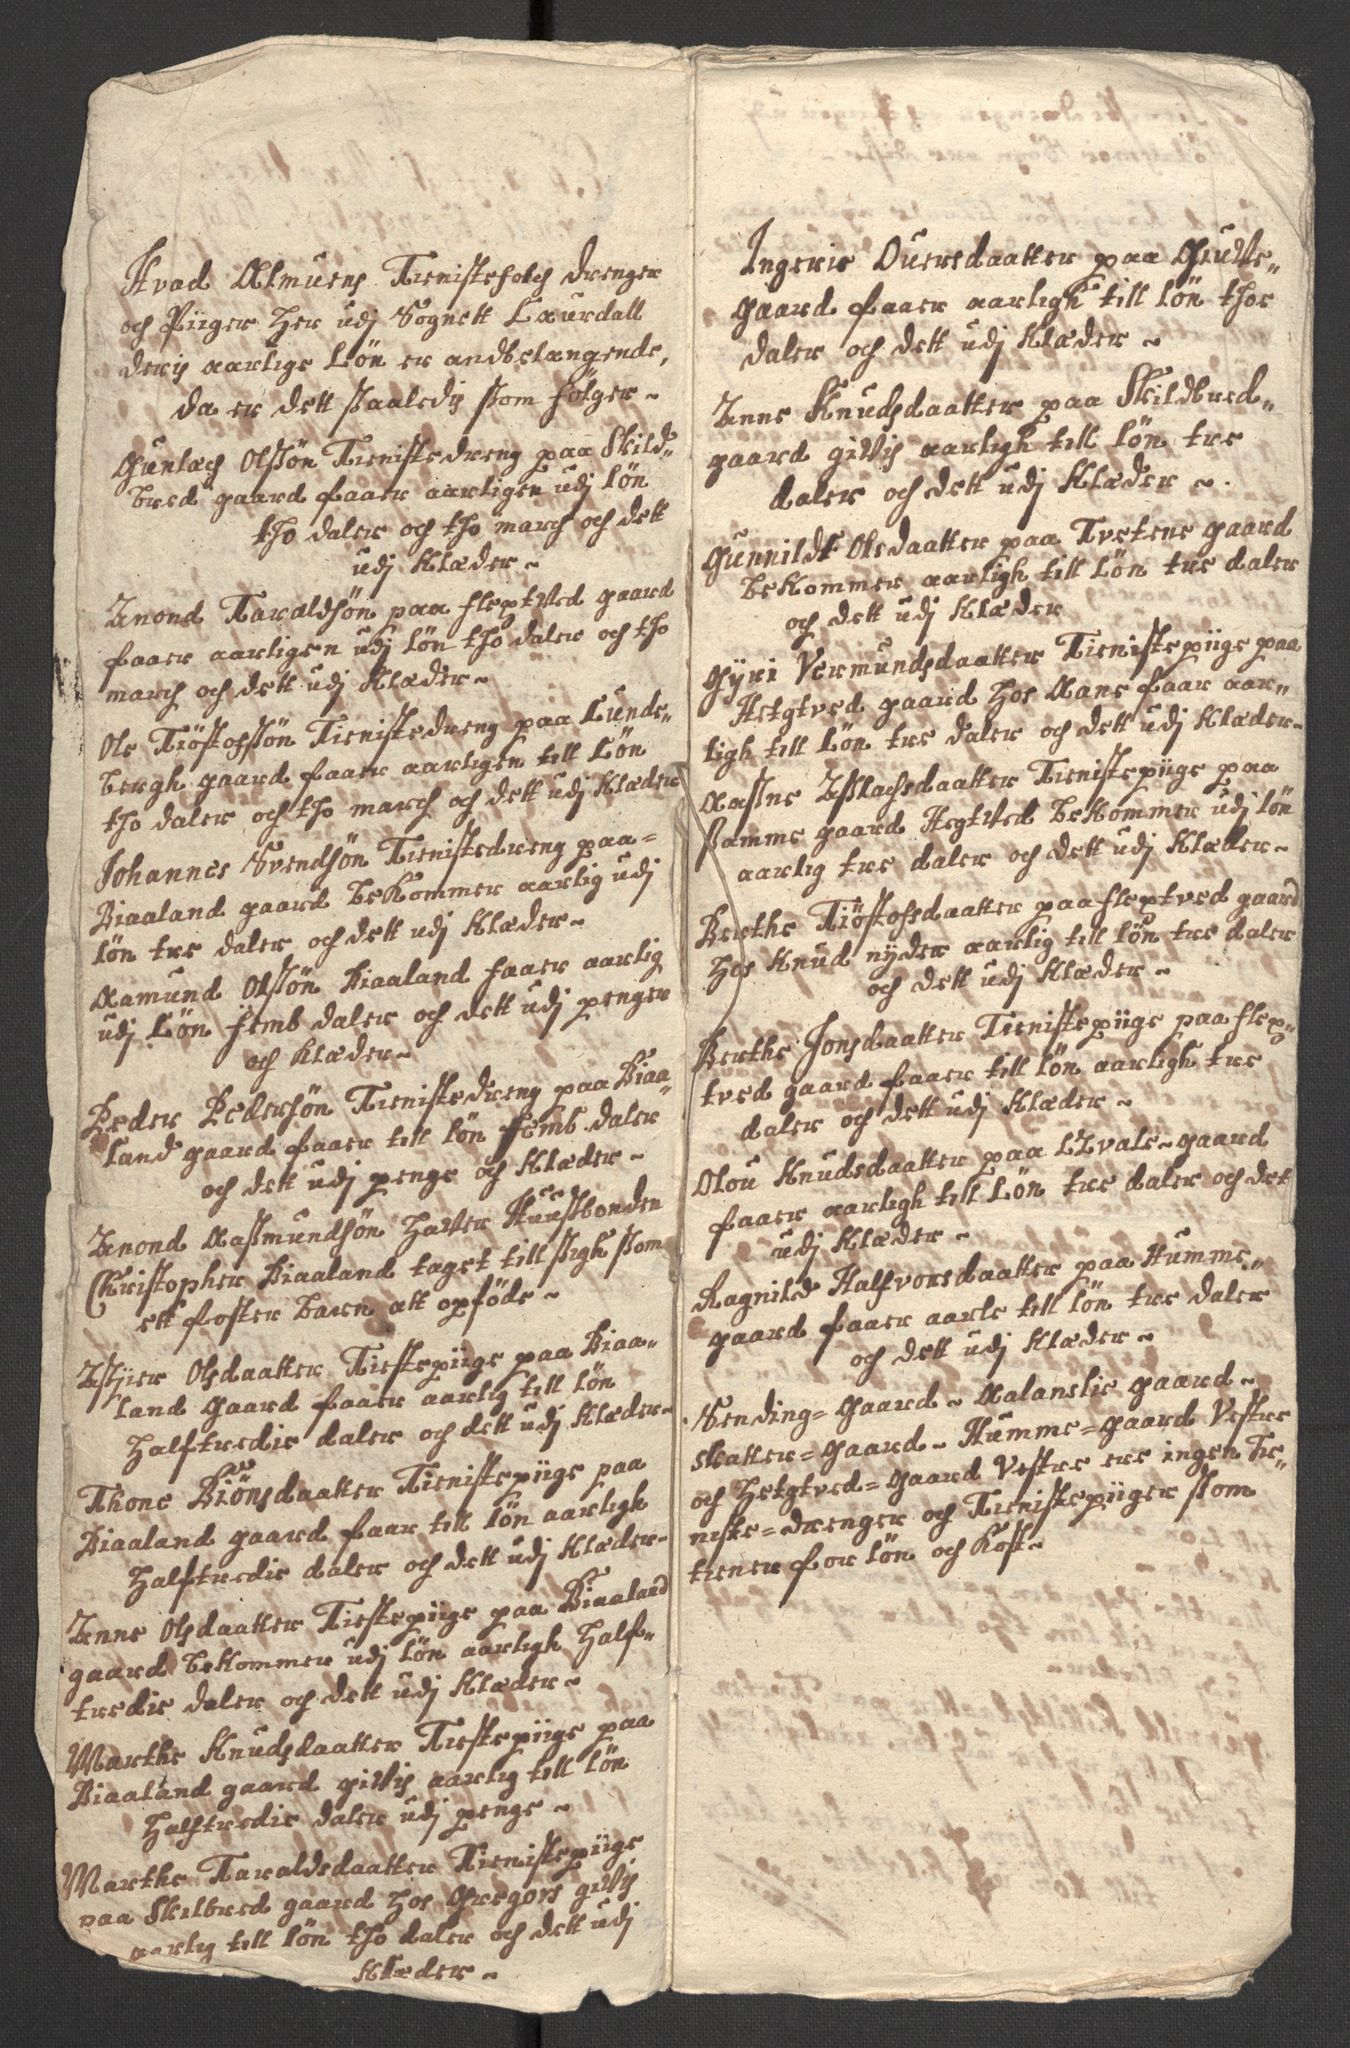 Hvad Almuens Tienistefolch drenger
och Piiger her udj Sognett Laurdall
deris aarlige Løn er andbelangende,
da er dett ssaaledis ssom følger ~
Gunlach Olssøn Tienistedreng paa Skild=
bred gaard faaer aarligen udj løn
tho daler och tho march och dett
udj Klæder ~
Anond Taraldsøn paa fleptved gaard
faaer aarligen udj løn tho daler och tho
march och dett udj Klæder ~
Ole Tiøstofssøn Tienistedreng paa Lunde=
bergh gaard faaer aarligen till Løn
tho daler och tho march och dett udj Klæder
Johannes Svendsøn Tienistedreng paa=
Biaaland gaard bekommer aarlig udj
løn tre daler och dett udj Klæder ~
Aamund Olssøn Biaaland faaer aarlig
udj Løn femb daler och dett udj penger
och Klæder ~
Peder Pedersøn Tienistedreng paa Biaa=
land gaard faaer till løn femb daler
och dett udj penge och Klæder ~
Anond Aassmundsøn hafver Huusbonden
Christopher Biaaland taget till ssigh ssom
ett foster barn att opføde ~
Olsdaatter Tiestepiige paa Biaa=
land gaard faaer aarlig till løn
halftredie daler och dett udj Klæder ~
Thone Biønsdaatter Tienistepiige paa
Biaaland gaard faar till løn aarligh
halftredie daler och dett udj Klæder ~
Anne Olsdaatter Tiestepiige paa Biaaland
gaard bekommer udj løn aarligh half=
tredie daler och dett udj Klæder ~
Marthe Knudsdaatter Tiestepiige paa
Biaaland gaard gifvis aarlig till løn
halftredie daler udj penge ~
Marthe Taraldsdaatter Tienistepiige
paa Skilbred gaard hos Gregors gifvis
aarlig till løn tho daler och dett udj
Klæder ~
Ingerie Ouersdaatter paa
gaard faaer aarligh till løn thoe
daler och dett udj Klæder ~
Anne Knudsdaatter paa Skildbred=
gaard gifvis aarligh till løn tre
daler och dett udj Klæder ~
Gunnild Olsdaatter paa Tvetene gaard
bekommer aarligh till løn tre daler
och dett udj Klæder
Gyri Vermundsdaatter Tienistepiige paa
Hetgtved gaard hos Aane faar aar=
ligh till løn tre daler och dett udj Klæder ~
Aassne Asslachsdaatter Tienistepiige paa
ssamme gaard Hegtved bekommer udj løn
aarlig tre daler och dett udj Klæder ~
Berthe Tiøstofsdaatter paa fleptved gaard
hos Knud nyder aarlig till løn tre daler
och dett udj Klæder ~
Berthe Jonsdaatter Tienistepiige paa flep=
tved gaard faaer till løn aarligh tre
daler och dett udj Klæder ~
Olou Knudsdaatter paa gaard
faaer aarligh till løn tre daler och det
udj Klæder ~
Ragnild Halfvorsdaatter paa Humme
gaard faaer aarle till løn tre daler
och dett udj Klæder ~
Sending=gaard ~ Aalanslie gaard ~
skatter=gaard ~ Humme=gaard Vestre
och hetgtved=gaard Vestre ere ingen Tie=
niste=drenger och Tienistepiiger ssom
tiener for løn och Kost ~